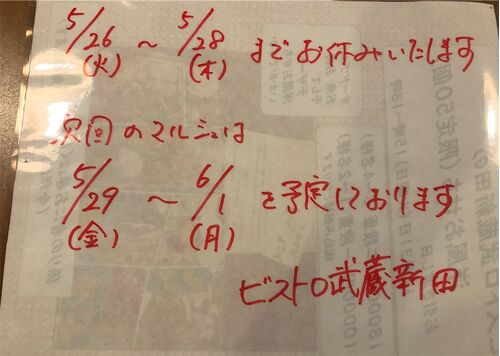 5/26(火)～5/28(木)までお休みいたします
次回のマルシェは
5/29(金)～6/1(月)を予定しております
ビストロ武蔵新田